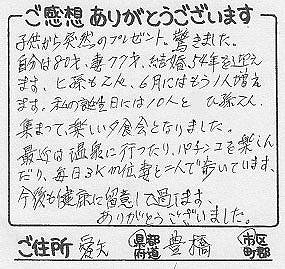 ご感想 ありがとうございます
子供から突然のプレゼント。驚きました。
自分は80才、妻77才、結婚54年を迎え
ます。ヒ孫も2人、6月にはもう1人増え
ます。私の誕生日には10人と ひ孫2人、
集まって、楽しい夕食会となりました。
最近は温泉に行ったり、パチンコを楽しん
だり、毎日3Km位妻と二人で歩いています。
今後も健康に留意して過します。
ありがとうございました。
ご住所 愛知 都道府県 豊橋 市区町郡